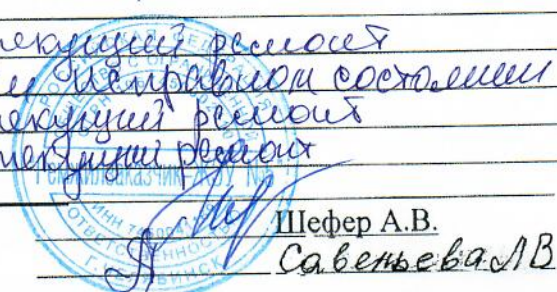 текущий ремонт
в исправном состоянии
текущий ремонт
текущий ремонт
Шефер А.В.
Савеньева ЛВ